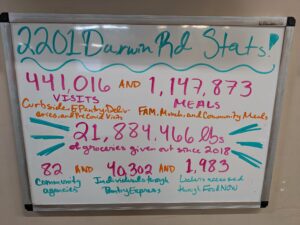 2201 Darwin Rd Stats!
441,016 AND 1,147,873
VISITS MEALS
Curbside, & Pantry, Deliv-
eries, and Pre Covid Visits
FAM, Munch, and Community Meals
21,884,466 lbs
of groceries given out since 2018
82 AND 40,302 AND 1,983
Community agencies
Individuals through Pantry Express
through Food NOW